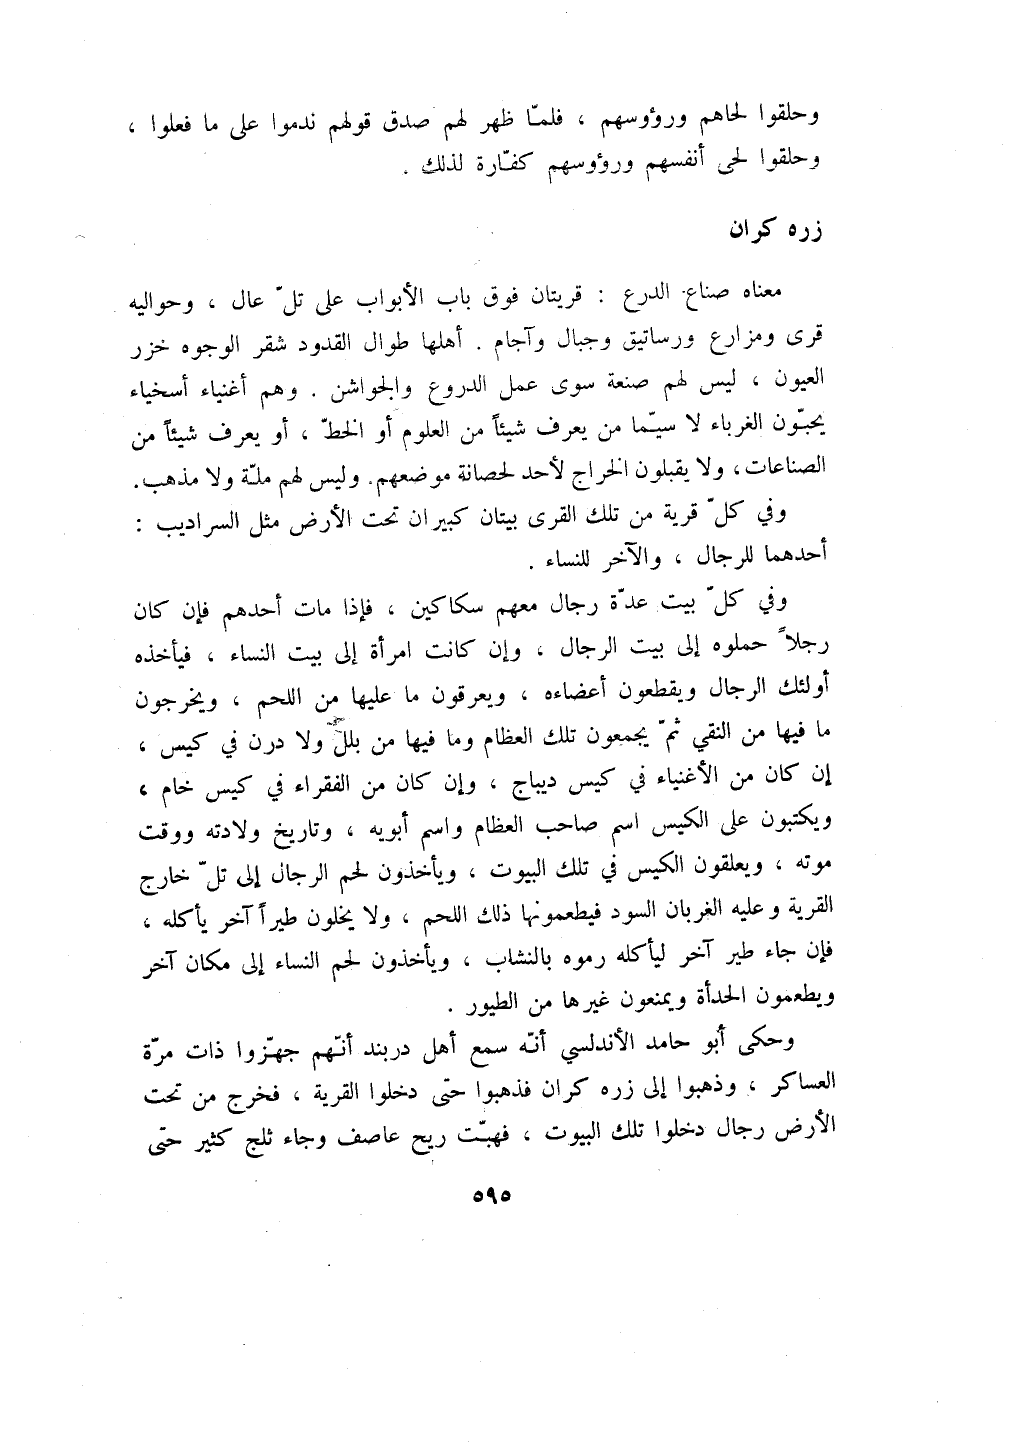 وحلقوا لحاهم ورؤوسهم ، فلمّا ظهر لهم صدق قولهم ندموا على ما فعلوا ،
وحلقوا لحى أنفسهم ورؤوسهم كفّارة لذلك .
زره كران
معناه صناع الدرع : قريتان فوق باب الأبواب على تلّ عال ، وحواليه
قرى ومزارع ورساتيق وجبال وآجام . أهلها طوال القدود شقر الوجوه خزر
العيون ، ليس لهم صنعة سوى عمل الدروع والجواشن . وهم أغنياء أسخياء
يحبّون الغرباء لا سيّما من يعرف شيئاً من العلوم أو الخطّ ، أو يعرف شيئاً من
الصناعات ، ولا يقبلون الخراج لأحد لحصانة موضعهم. وليس لهم ملّة ولا مذهب.
وفي كلّ قرية من تلك القرى بيتان كبيران تحت الأرض مثل السراديب :
أحدهما للرجال ، والآخر للنساء .
وفي كلّ بيت عدّة رجال معهم سكاكين ، فإذا مات أحدهم فإن كان
رجلاً حملوه إلى بيت الرجال ، وإن كانت امرأة إلى بيت النساء ، فيأخذه
أولئك الرجال ويقطعون أعضاءه ، ويعرقون ما عليها من اللحم ، ويخرجون
ما فيها من النقي ثمّ يجمعون تلك العظام وما فيها من بلل ولا درن في كيس ،
إن كان من الأغنياء في كيس ديباج ، وإن كان من الفقراء في كيس خام ،
ويكتبون على الكيس اسم صاحب العظام واسم أبويه ، وتاريخ ولادته ووقت
موته ، ويعلقون الكيس في تلك البيوت ، ويأخذون لحم الرجال إلى تلّ خارج
القرية وعليه الغربان السود فيطعمونها ذلك اللحم ، ولا يخلون طيراً آخر يأكله ،
فإن جاء طير آخر ليأكله رموه بالنشاب ، ويأخذون لحم النساء إلى مكان آخر
ويطعمون الحدأة ويمنعون غيرها من الطيور .
وحكى أبو حامد الأندلسي أنّه سمع أهل دربند أنّهم جهّزوا ذات مرّة
العساكر ، وذهبوا إلى زره كران فذهبوا حتّى دخلوا القرية ، فخرج من تحت
الأرض رجال دخلوا تلك البيوت ، فهبّت ريح عاصف وجاء ثلج كثير حتّى
٥٩٥